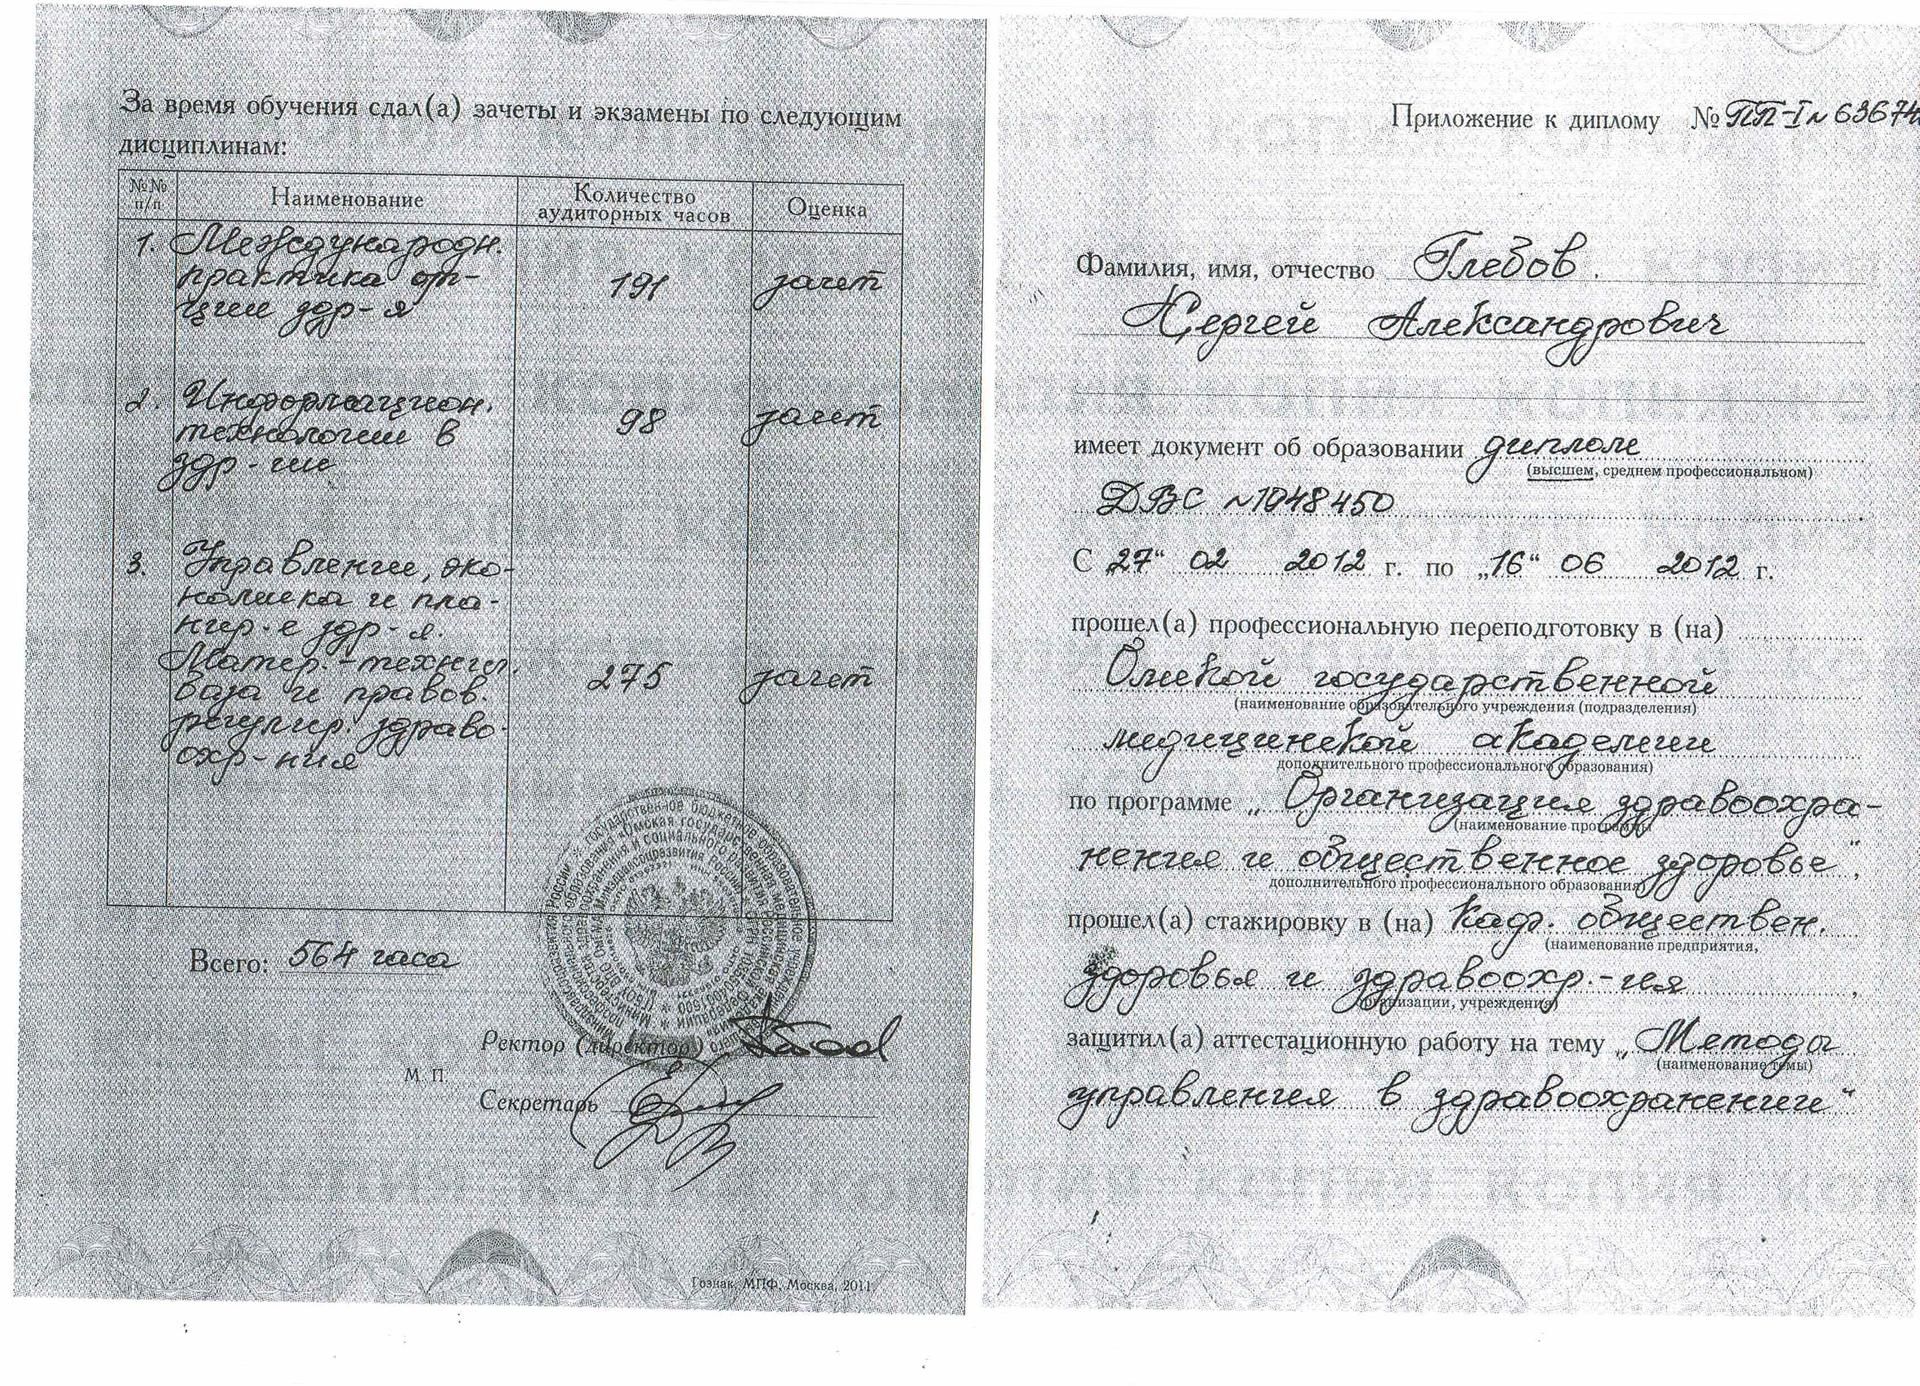 За время обучения сдал(а) зачеты и экзамены по следующим
дисциплинам:
№№ п/п Наименование Количество аудиторных часов Оценка
1. Международн.
практика орг-
ции здр-я 191 зачет
2. Информацион.
технологии в 98 зачет
здр-ии
3. Управление, эко-
номика и пла-
нир-е здр-я.
Матер.-технич. 275 зачет
база и правов.
регулир. здраво-
охр-ния
Всего: 564 часа
Ректор (директор)
М. П.
Секретарь
Гознак, МПФ, Москва, 2011.
Приложение к диплому № ПП-I № 63674
Фамилия, имя, отчество Глебов
Сергей Александрович
имеет документ об образовании диплом
(высшем, среднем профессиональном)
ДВС №1048450
С „27“ 02 2012 г. по „16“ 06 2012 г.
прошел(а) профессиональную переподготовку в (на)
Омской государственной
(наименование образовательного учреждения (подразделения)
медицинской академии
дополнительного профессионального образования)
по программе „Организация здравоохра-
(наименование программы
нения и общественное здоровье“,
дополнительного профессионального образования)
прошел(а) стажировку в (на) Каф. обществен.
(наименование предприятия,
здоровья и здравоохр.-ия,
организации, учреждения)
защитил(а) аттестационную работу на тему „Методы
(наименование темы)
управления в здравоохранении“